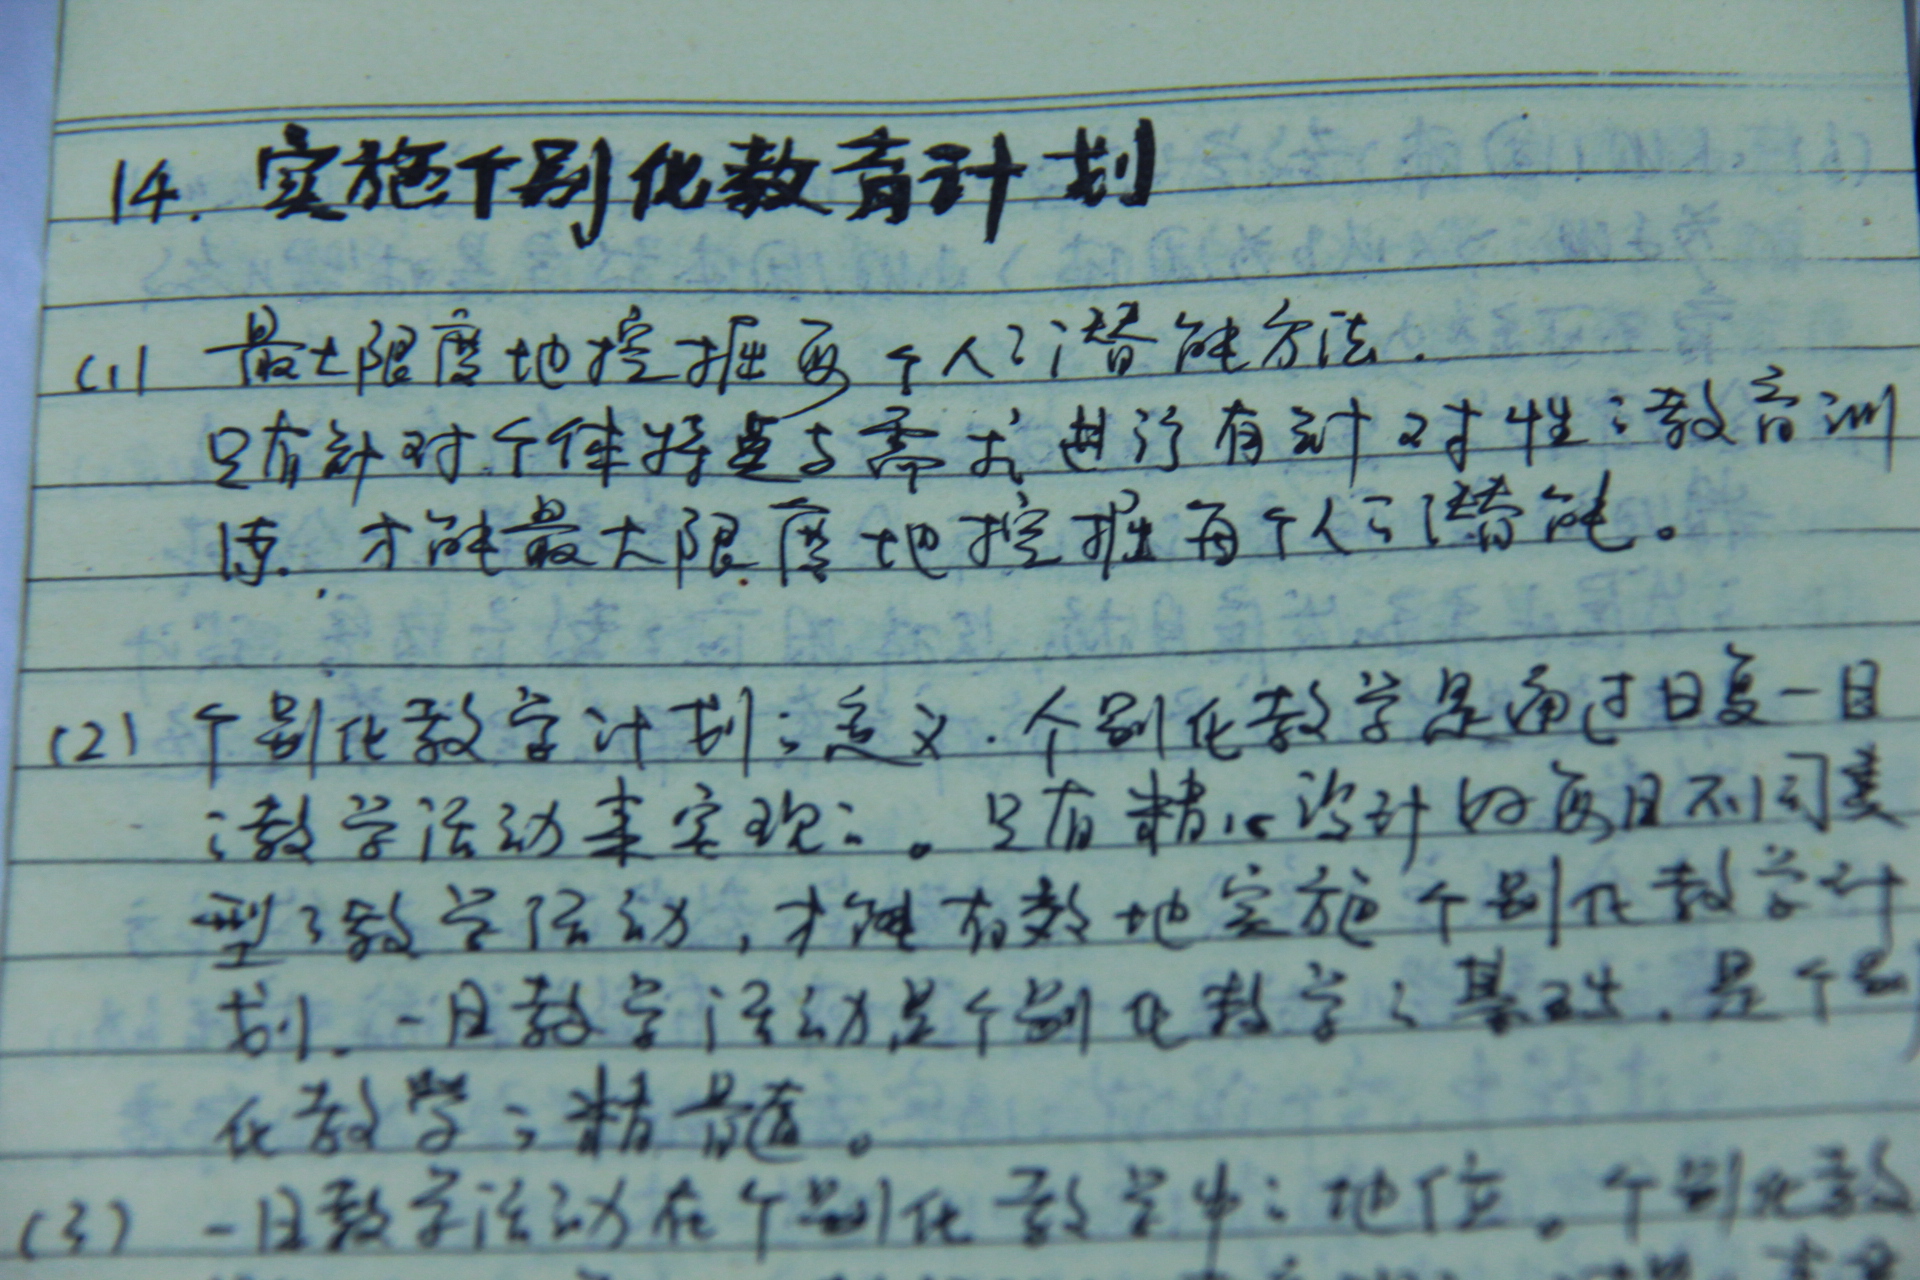 14. 实施个别化教育计划
(1) 最大限度地挖掘每个人的潜能方法.
只有针对个体特点与需求进行有针对性的教育训
练. 才能最大限度地挖掘每个人的潜能。
(2) 个别化教学计划的意义. 个别化教学是通过日复一日
的教学活动来实现的。只有精心设计好每日不同类
型的教学活动,才能有效地实施个别化教学计
划. 一日教学活动是个别化教学的基础. 是个别
化教学的精髓。
(3) 一日教学活动在个别化教学中的地位。个别化教